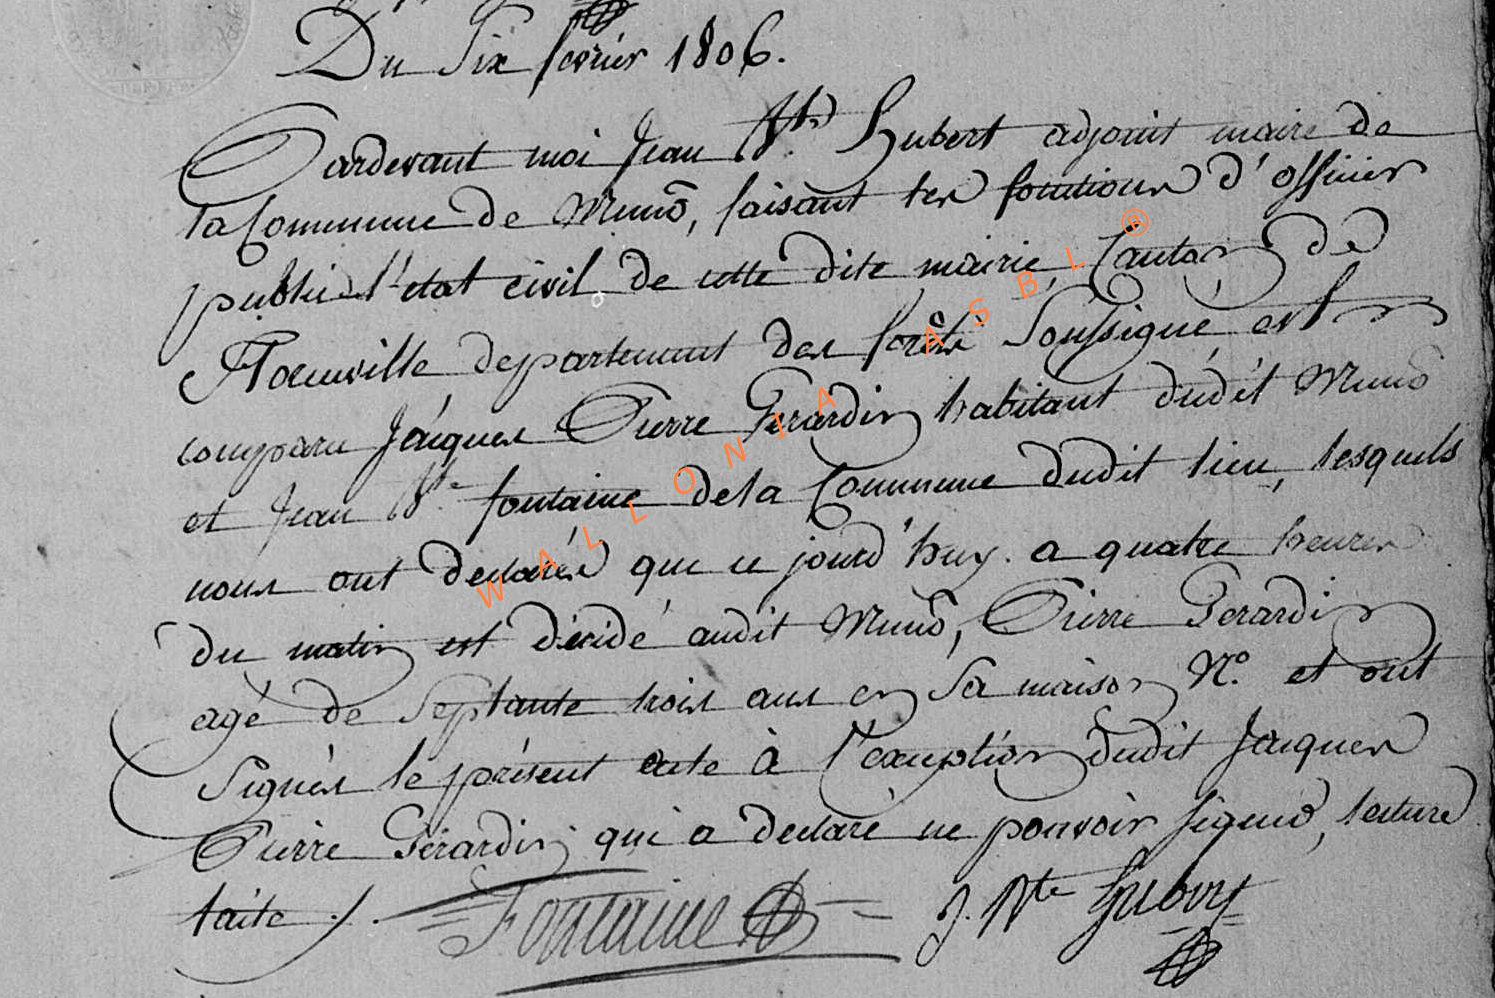 Du Six fevrier 1806.
Pardevant moi Jean Bte Hubert adjoint maire de
la Commune de Munõ, faisant les fonctions d'officier
public d l'etat civil de cette dite mairie, Canton de
Florenville departement des forêts Soussigné est
comparu Jacques Pierre Gerardin habitant dudit Muno
et Jean Bte fontaine de la Commune dudit lieu, lesquels
nous ont declarés que ce jourd'huy a quatre heures
du matin est décidé audit Munõ, Pierre Gerardin
agé de Septante trois ans en Sa maison No. et ont
Signés le présent acte à l'exception dudit Jacques
Pierre Gérardin qui a declaré ne pouvoir signer, lecture
faite ./.
Fontaine
J. Bte Hubert
WALLONIA ASBL ®